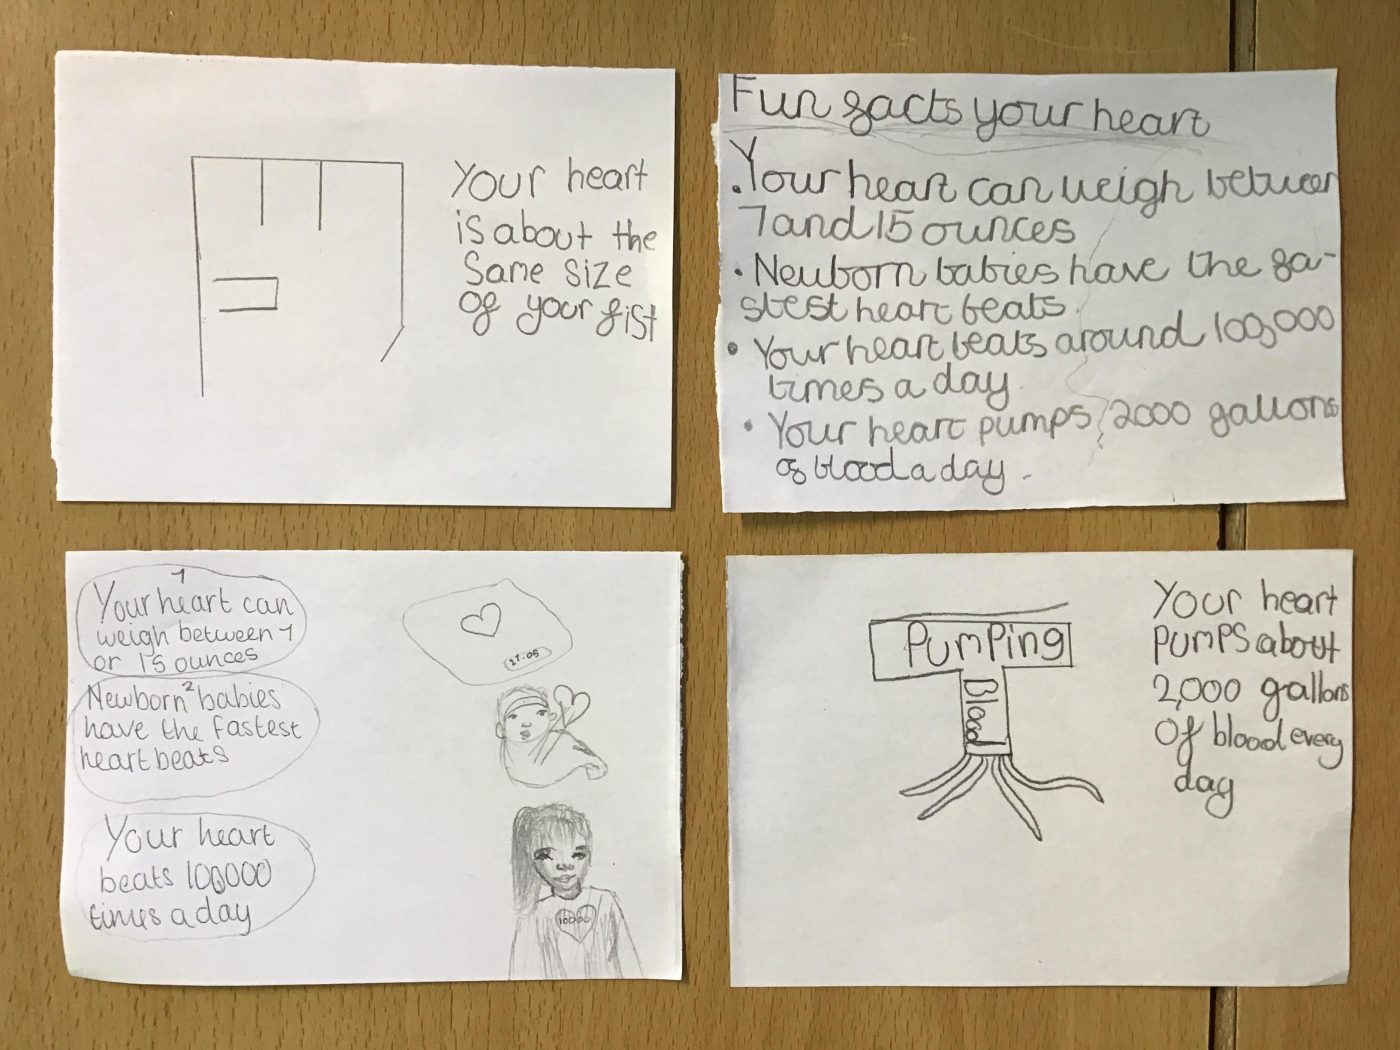 Your heart
is about the
same size
of your fist
Fun facts your heart
. Your heart can weigh between
7 and 15 ounces
• Newborn babies have the fa-
stest heart beats.
• Your heart beats around 100,000
times a day.
• Your heart pumps 2000 gallons
of blood a day.
1
Your heart can
weigh between 7
or 15 ounces
2
Newborn babies
have the fastest
heart beats
Your heart
beats 100,000
times a day
Pumping
Blood
Your heart
pumps about
2,000 gallons
of blood every
day